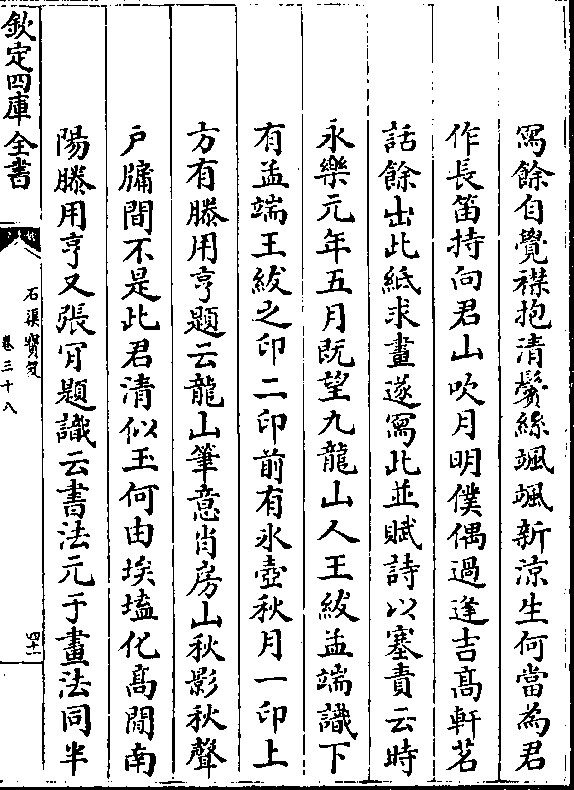 寫餘自覺襟抱清鬢絲颯颯新涼生何當為君
作長笛持向君山吹月明僕偶過逢吉髙軒茗
話餘出此紙求畫遂寫此並賦詩以塞責云時
永樂元年五月既望九龍山人王紱孟端識下
有孟端王紱之印二印前有氷壺秋月一印上
方有滕用亨題云龍山筆意肖房山秋影秋聲
户牖間不是此君清似玉何由埃壒化髙閒南
陽滕用亨又張肎題識云書法元于畫法同半
欽定四庫全書
石渠寳笈
卷三十八
四十